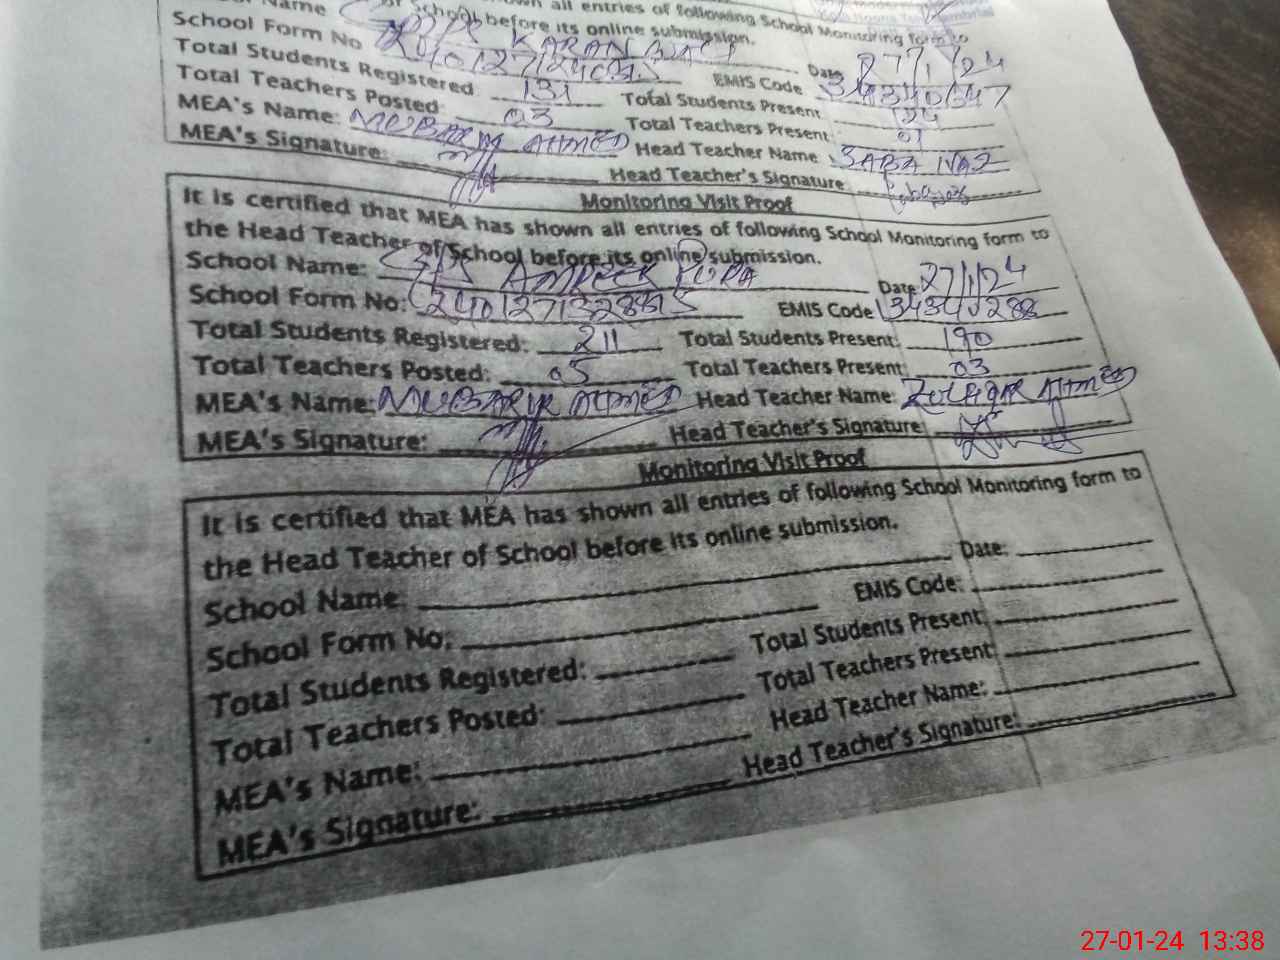 all entries of following School Monitoring form to
of School before its online submission.
Name KARAN Date 27/1/24
School Form No EMIS Code
Total Students Registered: 131 Total Students Present 124
Total Teachers Posted: 03 Total Teachers Present 01
MEA's Name: MUBARIK AHMED Head Teacher Name: SABA NAZ
MEA's Signature: Head Teacher's Signature
Monitoring Visit Proof
It is certified that MEA has shown all entries of following School Monitoring form to
the Head Teacher of School before its online submission.
School Name: GPS PURA Date 27/1/24
School Form No: EMIS Code
Total Students Registered: 211 Total Students Present: 190
Total Teachers Posted: 05 Total Teachers Present: 03
MEA's Name: MUBARIK AHMED Head Teacher Name: ZULFIQAR AHMED
MEA's Signature: Head Teacher's Signature
Monitoring Visit Proof
It is certified that MEA has shown all entries of following School Monitoring form to
the Head Teacher of School before its online submission.
School Name: Date:
School Form No: EMIS Code:
Total Students Registered: Total Students Present:
Total Teachers Posted: Total Teachers Present:
MEA's Name: Head Teacher Name:
MEA's Signature: Head Teacher's Signature:
27-01-24 13:38